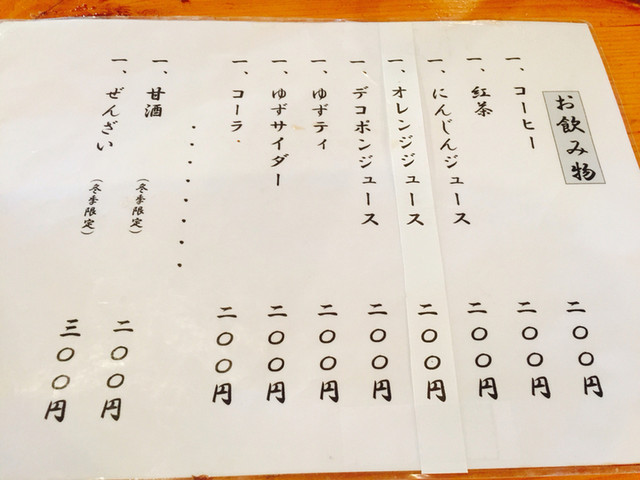 お飲み物
一、コーヒー 二〇〇円
一、紅茶 二〇〇円
一、にんじんジュース 二〇〇円
一、オレンジジュース 二〇〇円
一、デコポンジュース 二〇〇円
一、ゆずティ 二〇〇円
一、ゆずサイダー 二〇〇円
一、コーラ 二〇〇円
・・・・・・・・
一、甘酒 (冬季限定) 二〇〇円
一、ぜんざい (冬季限定) 三〇〇円